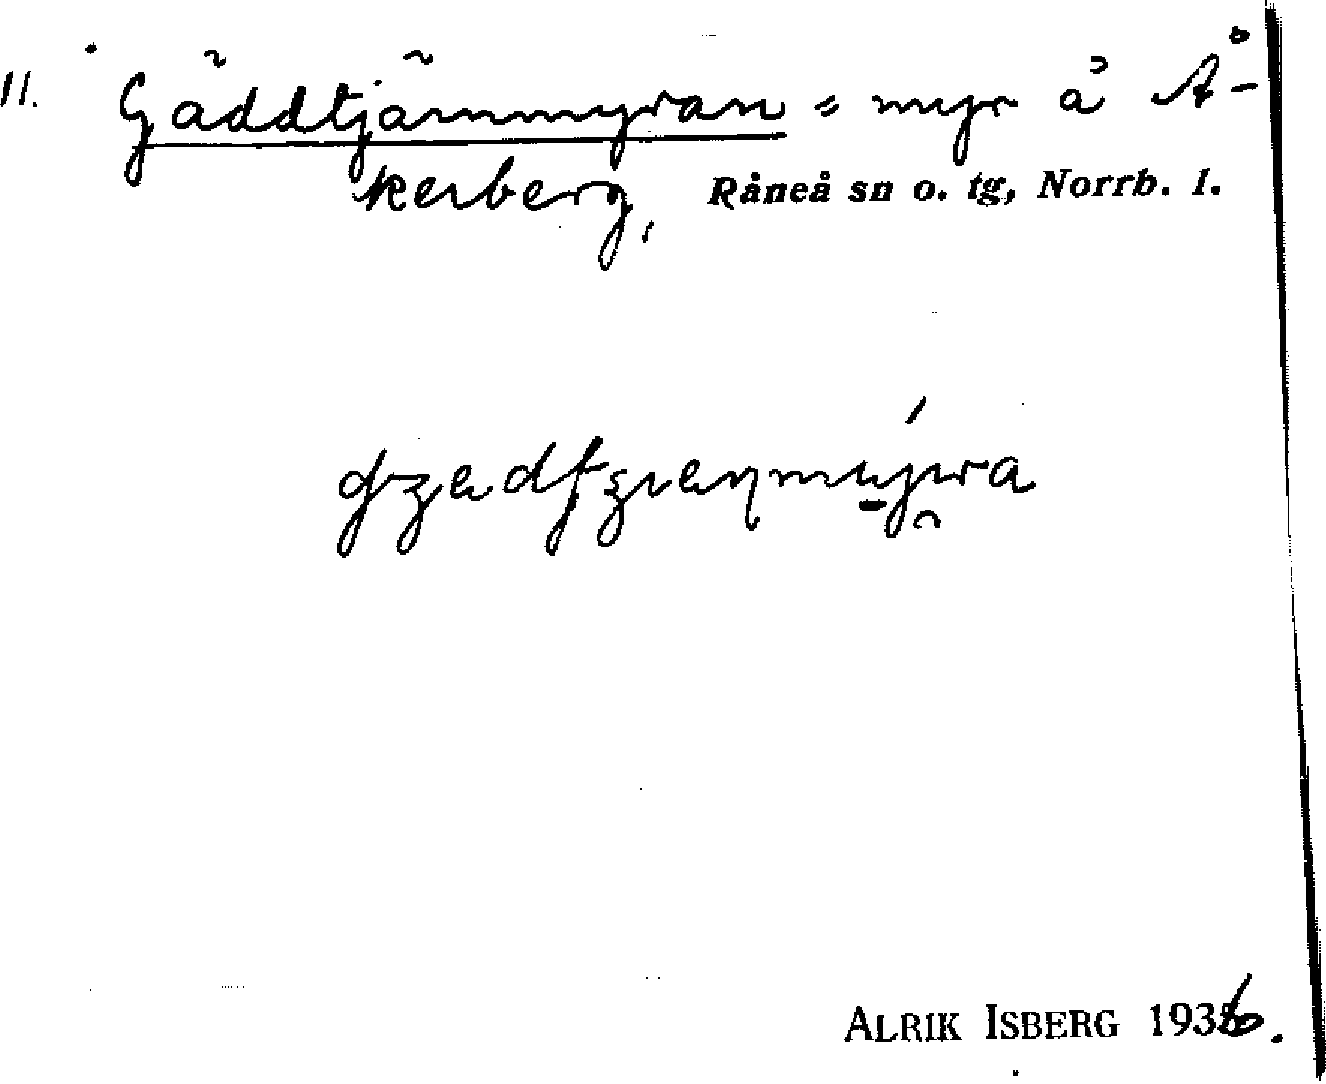 11. Gäddtjärnmyran = myr å Å-
kerberg, Råneå sn o. tg, Norrb. l.
ALRIK ISBERG 1936.